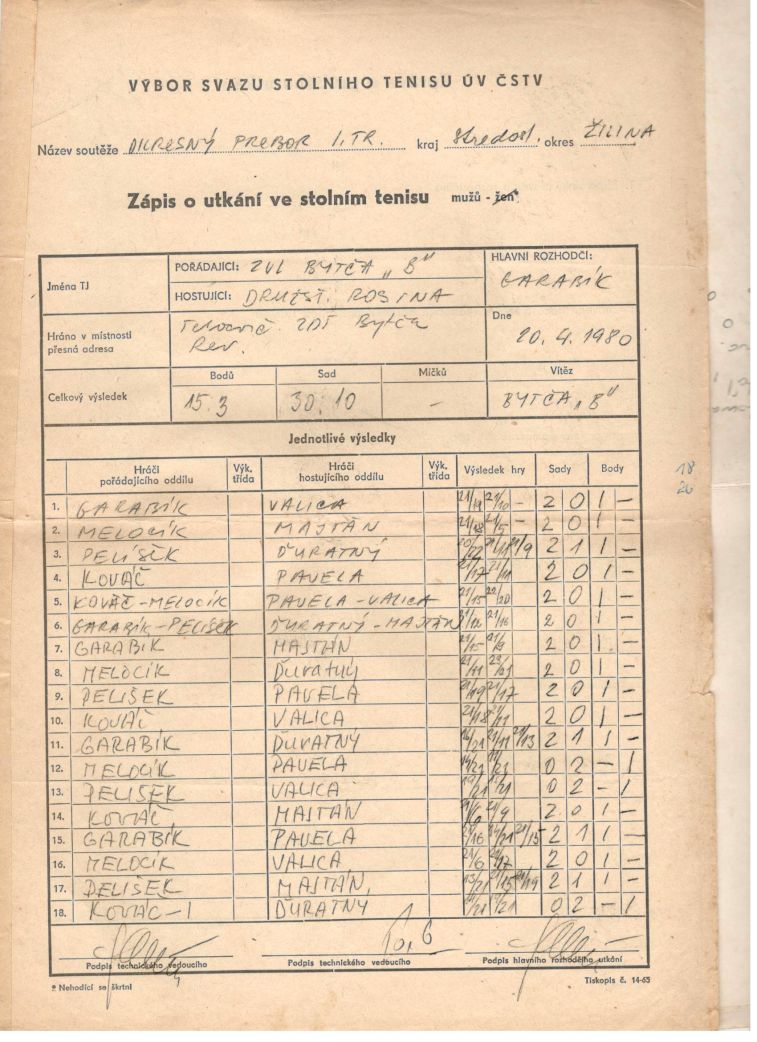 VÝBOR SVAZU STOLNÍHO TENISU ÚV ČSTV
Název soutěže OKRESNÝ PREBOR I. TR. kraj Stredosl. okres ŽILINA
Zápis o utkání ve stolním tenisu mužů - žen*
Jména TJ
POŘÁDAJÍCÍ: ZVL BYTČA „B"
HLAVNÍ ROZHODČÍ:
GARABÍK
HOSTUJÍCÍ: DRUŽST. ROSINA
Hráno v místnosti
přesná adresa
ZDŠ Bytča
Rev.
Dne
20. 4. 1980
Celkový výsledek
Bodů Sad Míčků Vítěz
15:3 30:10 – BYTČA „B"
Jednotlivé výsledky
Hráči pořádajícího oddílu Výk. třída Hráči hostujícího oddílu Výk. třída Výsledek hry Sady Body
1. GARABÍK VALICA 21/19 21/10 – 2 0 1 –
2. MELOCÍK MAJTÁN 21/18 21/5 – 2 0 1 –
3. PELÍŠEK ĎURATNÝ 20/22 21/11 21/9 2 1 1 –
4. KOVÁČ PAVELA 21/17 21/11 2 0 1 –
5. KOVÁČ-MELOCÍK PAVELA-VALICA 21/15 22/20 2 0 1 –
6. GARABÍK-PELÍŠEK ĎURATNÝ-MAJTÁN 21/12 21/16 2 0 1 –
7. GARABÍK MAJTÁN 21/15 21/9 2 0 1 –
8. MELOCÍK Ďuratný 21/11 23/21 2 0 1 –
9. PELÍŠEK PAVELA 21/19 21/17 2 0 1 –
10. KOVÁČ VALICA 21/18 21/11 2 0 1 –
11. GARABÍK ĎURATNÝ 16/21 21/11 21/13 2 1 1 –
12. MELOCÍK PAVELA 0 2 – 1
13. PELÍŠEK VALICA 0 2 – 1
14. KOVÁČ MAJTÁN 21/6 21/9 2 0 1 –
15. GARABÍK PAVELA 21/16 14/21 21/15 2 1 1 –
16. MELOCÍK VALICA 21/6 21/17 2 0 1 –
17. PELÍŠEK MAJTÁN 13/21 21/15 21/19 2 1 1 –
18. KOVÁČ-1 ĎURATNÝ 0 2 – 1
18
26
Podpis technického vedoucího Podpis technického vedoucího Podpis hlavního rozhodčího utkání
* Nehodící se škrtni Tiskopis č. 14-65